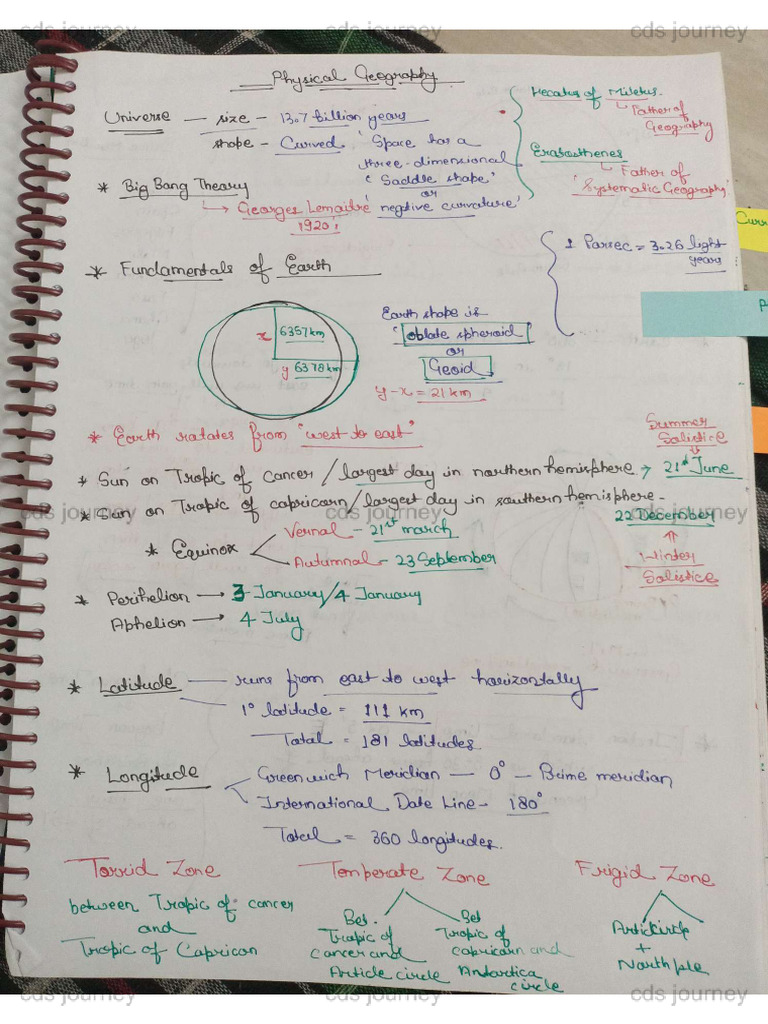 cds journey cds journey cds journey
Physical Geography
Universe — size — 13.7 billion years
shape — Curved 'Space has a
three-dimensional
'Saddle shape'
or
negtive curvature'
* Big Bang Theory
Georges Lemaitre
1920!
Hecatus of Miletus.
Father of
Geography
Erasosthenes
Father of
'Systematic Geography'
1 Parsec = 3.26 light
years
Curr
P
* Fundamentals of Earth
x 6357 km
y 6378 km
Earth shape is
'oblate spheroid
or
Geoid
y-x = 21 km
* Earth ratates from "west to east"
Summer
Salistice
* Sun on Tropic of cancer / largest day in northern hemisphere → 21st June
* Sun on Tropic of capricarn / largest day in southern hemisphere -
22 December
cds journey cds journey cds journey
Winder
Salistice
* Equinox
Vernal - 21st march
Autumnal - 23 September
* Perihelion → 3 January / 4 January
Aphelion → 4 July
* Latitude — runs from east to west horizontally
1° latitude = 111 km
Total = 181 latitudes.
* Longitude
Greenwich Meridian — 0° — Brime meridian
International Date Line - 180°
Total = 360 longitudes.
Torrid Zone
between Tropic of cancer
and
Tropic of Capricon
Temperate Zone
Bet.
Tropic of
cancer and
Article circle
Bet
Tropic of
capricarn and
Antartica
circle
Frigid Zone
Articircle
+
North ple
cds journey cds journey cds journey